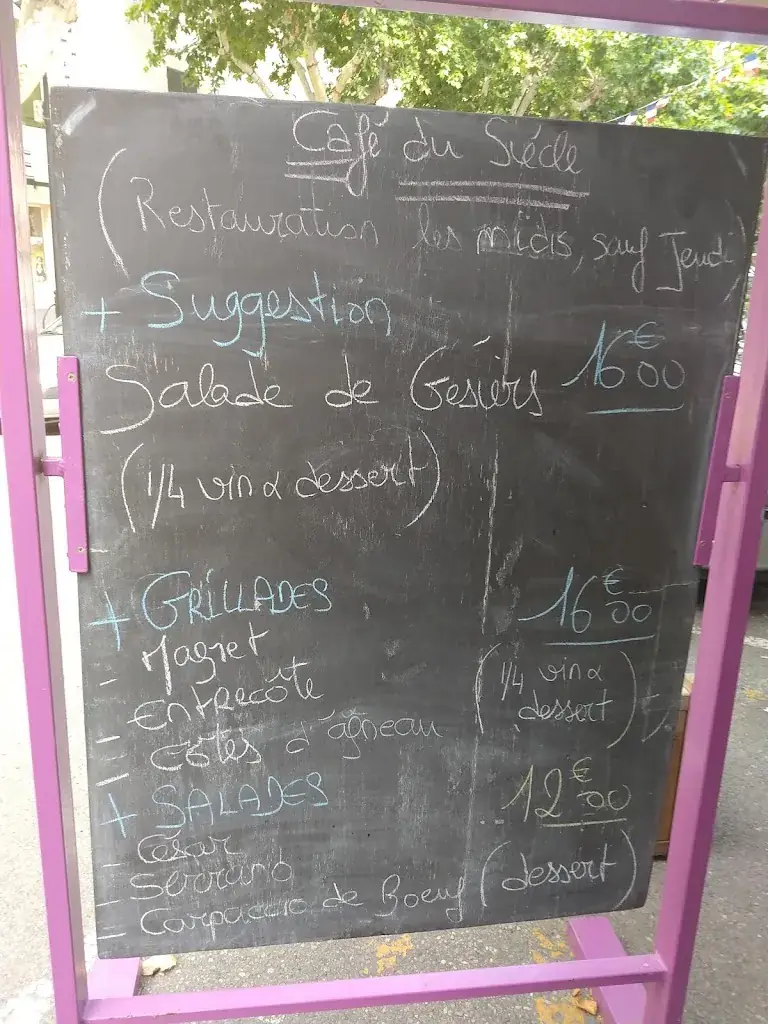 Café du Siécle
(Restauration les midis, sauf Jeudi)
+ Suggestion
Salade de Gésiers 16€00
(1/4 vin & dessert)
+ GRILLADES 16€00
- Magret
- Entrecôte
- Côtes d'agneau
(1/4 vin &
dessert)
+ SALADES 12€00
- César
- Serrano
- Carpaccio de Boeuf (dessert)